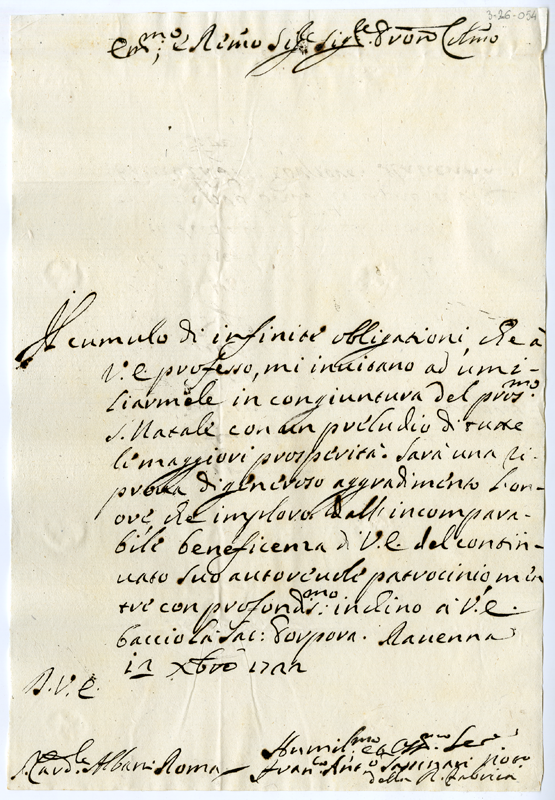 3-26-054
Em.mo, e Remo Sig.re Sig.re Pron Colmo
Il cumulo di infinite obligationi, che à
V.E. professo, mi invitano ad umi-
liarmele in congiuntura del pross.mo
S. Natale con un preludio di tutte
le maggiori prosperità. Sarà una ri-
prova di generoso aggradimento l'on-
ore, che imploro dall'incompara-
bile beneficenza di V.E. del contin-
uato suo autorevole patrocinio, men
tre con profondis.mo inchino à V.E.
bacciola Sac: Porpora. Ravenna
12 Xbre 1722
D.V.E.
Humil.mo Ser.e
S. Card.le Albani Roma Fran.co Ant.o
della R. Fabrica